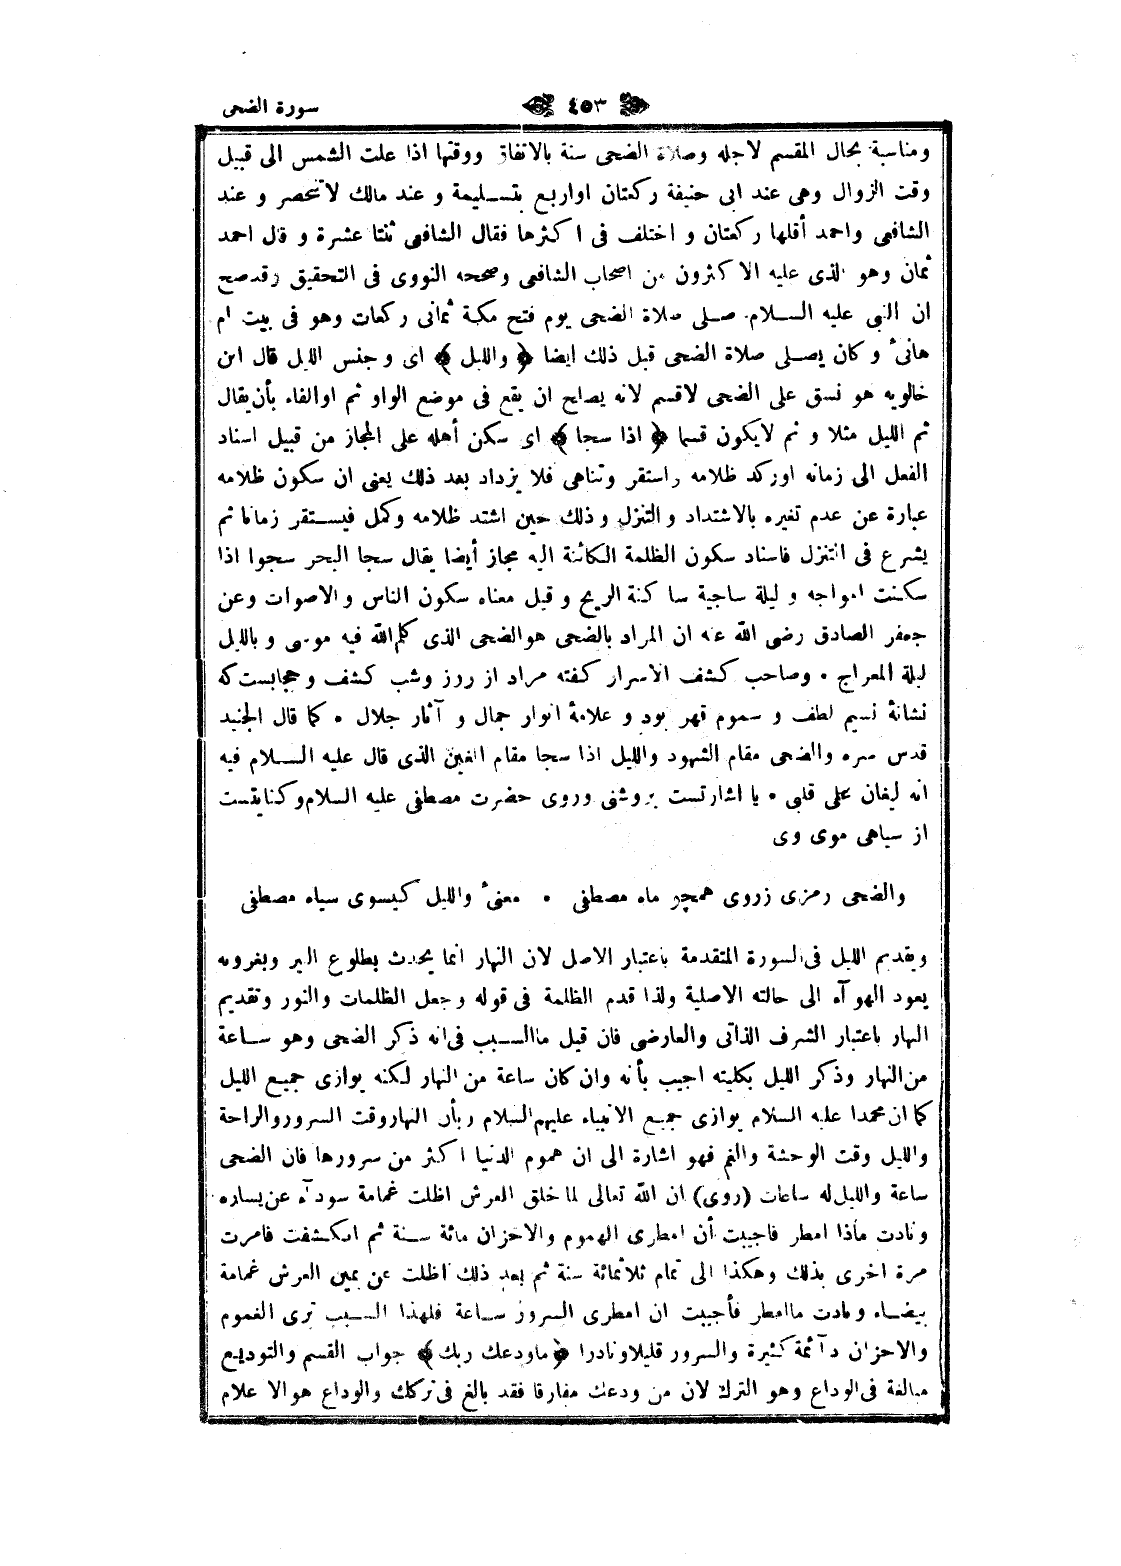 سورة الضحى ﴿ ٤٥٣ ﴾
ومناسبة بحال المقسم لاجله وصلاة الضحى سنة بالاتفاق ووقتها اذا علت الشمس الى قبيل
وقت الزوال وهى عند ابى حنيفة ركعتان اواربع بتسليمة وعند مالك لاتنحصر وعند
الشافعى واحمد أقلها ركعتان واختلف فى اكثرها فقال الشافعى ثنتا عشرة وقال احمد
ثمان وهو الذى عليه الاكثرون من اصحاب الشافعى وصححه النووى فى التحقيق وقدصح
ان النبى عليه السلام صلى صلاة الضحى يوم فتح مكة ثمانى ركعات وهو فى بيت ام
هانىء وكان يصلى صلاة الضحى قبل ذلك ايضا ﴿ والليل ﴾ اى وجنس الليل قال ابن
خالويه هو نسق على الضحى لاقسم لانه يصلح ان يقع فى موضع الواو ثم اوالفاء بأن يقال
ثم الليل مثلا وثم لايكون قسما ﴿ اذا سجا ﴾ اى سكن أهله على المجاز من قبيل اسناد
الفعل الى زمانه اوركد ظلامه واستقر وتناهى فلا يزداد بعد ذلك يعنى ان سكون ظلامه
عبارة عن عدم تغيره بالاشتداد والتنزل وذلك حين اشتد ظلامه وكمل فيستقر زمانا ثم
يشرع فى التنزل فاسناد سكون الظلمة الكائنة اليه مجاز أيضا يقال سجا البحر سجوا اذا
سكنت امواجه وليلة ساجية ساكنة الريح وقيل معناه سكون الناس والاصوات وعن
جعفر الصادق رضى الله عنه ان المراد بالضحى هوالضحى الذى كلم الله فيه موسى وبالليل
ليلة المعراج • وصاحب كشف الاسرار كفته مراد از روز وشب كشف وحجابست كه
نشانهٔ نسيم لطف وسموم قهر بود وعلامهٔ انوار جمال وآثار جلال • كما قال الجنيد
قدس سره والضحى مقام الشهود والليل اذا سجا مقام الغين الذى قال عليه السلام فيه
انه ليغان على قلبى • يا اشارتست بروشنى وروى حضرت مصطفى عليه السلام وكنايتست
از سياهى موى وى
والضحى رمزى زروى همچو ماه مصطفى • معنىء والليل كيسوى سياه مصطفى
وبقديم الليل فى السورة المتقدمة باعتبار الاصل لان النهار انما يحدث بطلوع النير وبغروبه
يعود الهوآء الى حالته الاصلية ولذا قدم الظلمة فى قوله وجعل الظلمات والنور وتقديم
النهار باعتبار الشرف الذاتى والعارضى فان قيل ماالسبب فى انه ذكر الضحى وهو ساعة
من النهار وذكر الليل بكليته اجيب بأنه وان كان ساعة من النهار لكنه يوازى جميع الليل
كما ان محمدا عليه السلام يوازى جميع الانبياء عليهم السلام وبأن النهار وقت السرور والراحة
والليل وقت الوحشة والغم فهو اشارة الى ان هموم الدنيا اكثر من سرورها فان الضحى
ساعة والليل له ساعات (روى) ان الله تعالى لما خلق العرش اظلت غمامة سودآء عن يساره
ونادت ماذا امطر فاجيبت أن امطرى الهموم والاحزان مائة سنة ثم انكشفت فامرت
مرة اخرى بذلك وهكذا الى تمام ثلاثمائة سنة ثم بعد ذلك اظلت عن يمين العرش غمامة
بيضاء ونادت ماامطر فأجيبت ان امطرى السرور ساعة فلهذا السبب ترى الغموم
والاحزان دآئمة كثيرة والسرور قليلا ونادرا ﴿ ماودعك ربك ﴾ جواب القسم والتوديع
مبالغة فى الوداع وهو الترك لان من ودعك مفارقا فقد بالغ فى تركك والوداع هوالاعلام